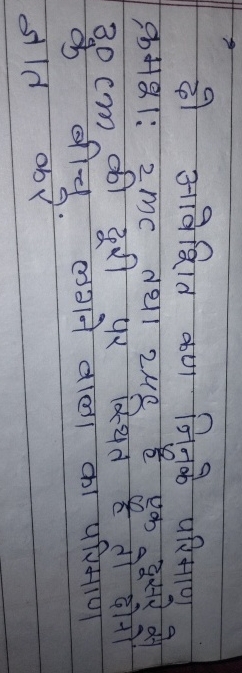 दो आवेशित कण जिनके परिमाण
क्रमशः 2mc तथा 2μc है एक दूसरे से
30 cm की दूरी पर स्थित है तो दोनो
के बीच लगने वाला का परिमाण
ज्ञात करे